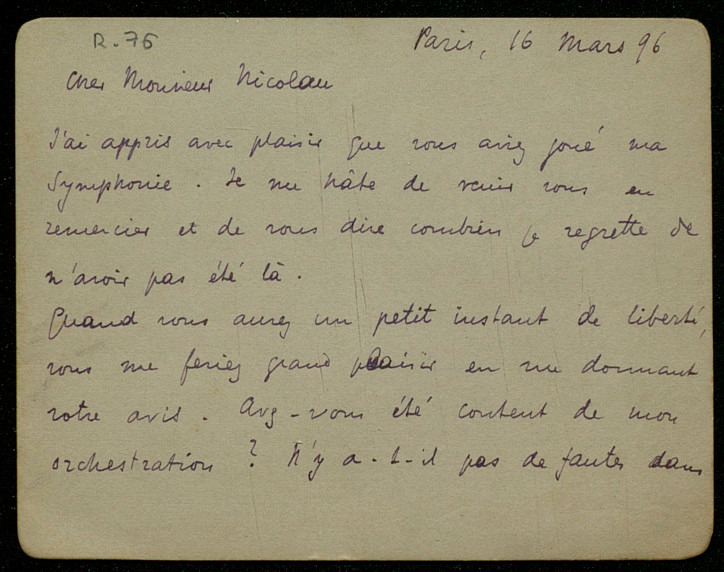 R. 76
Paris, 16 Mars 96
Cher Monsieur Nicolau
J'ai appris avec plaisir que vous aviez joué ma
Symphonie. Je me hâte de venir vous en
remercier et de vous dire combien je regrette de
n'avoir pas été là.
Quand vous aurez un petit instant de liberté,
vous me feriez grand plaisir en me donnant
votre avis. Avez-vous été content de mon
orchestration ? N'y a-t-il pas de fautes dans